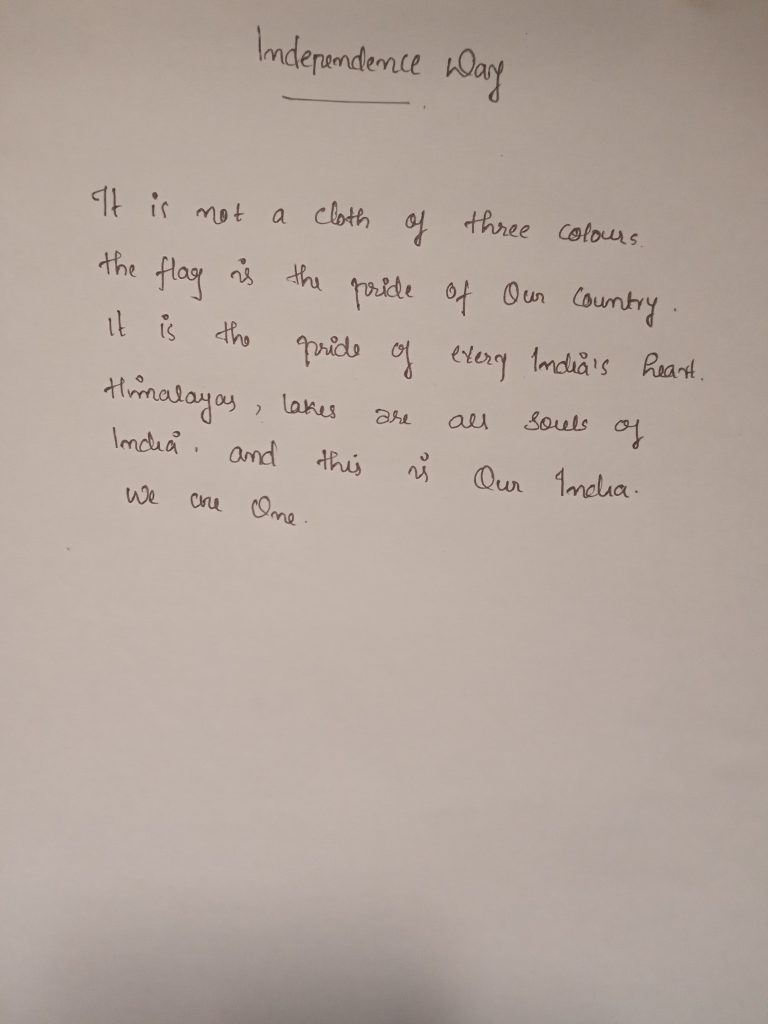 Independence Day
It is not a cloth of three colours.
the flag is the pride of Our Country.
it is the pride of every India's heart.
Himalayas, lakes are all souls of
India. and this is Our India.
We are One.